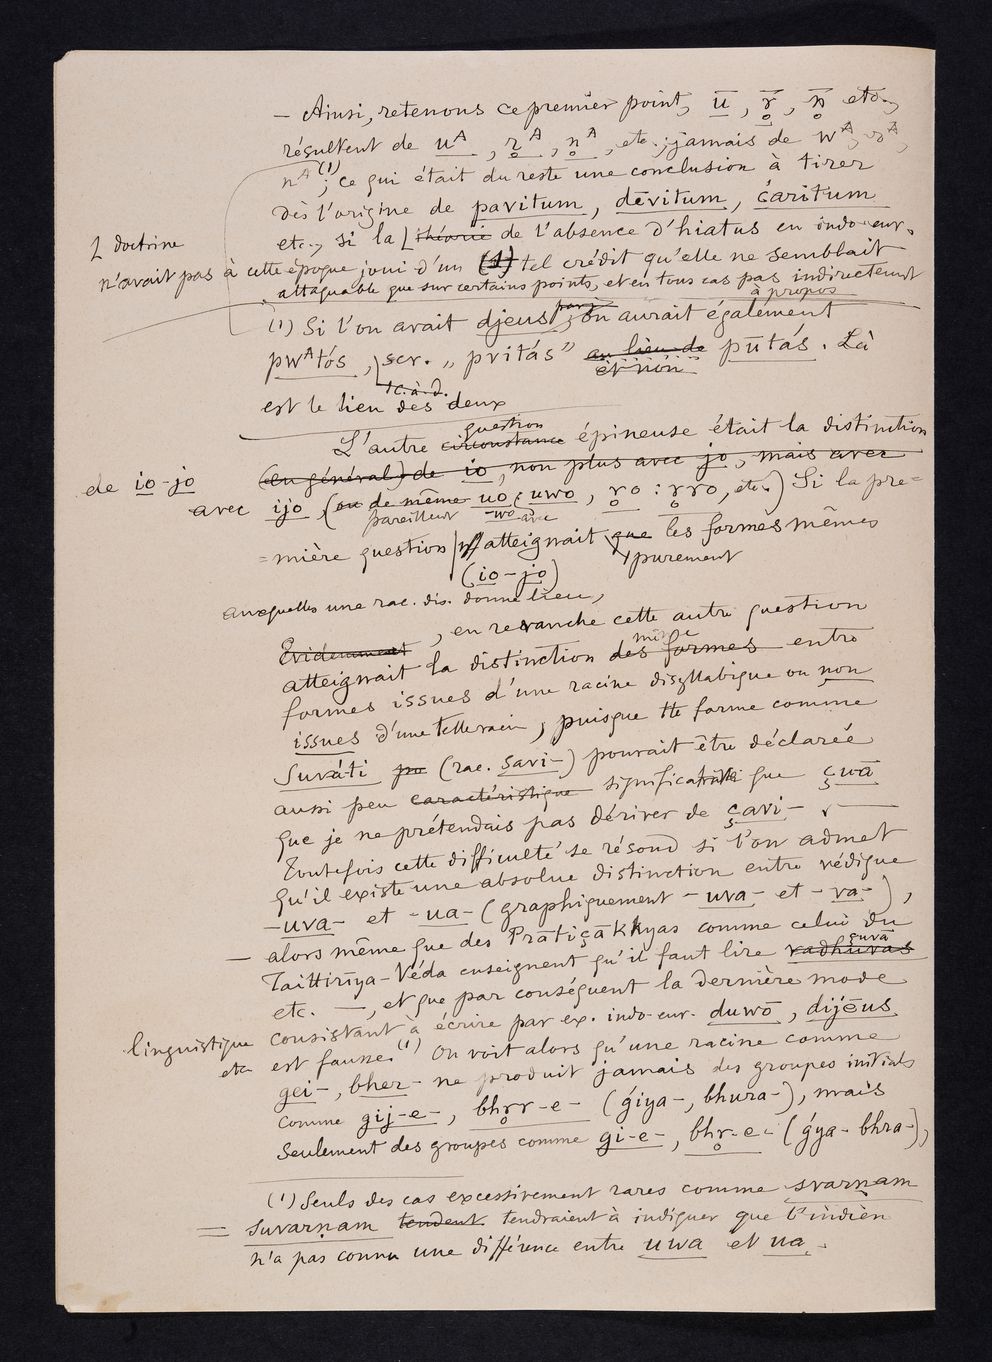 — Ainsi, retenons ce premier point, ū, r̥̄, n̥̄ etc.,
résultent de uᴬ, r̥ᴬ, n̥ᴬ, etc.; jamais de wᴬ, rᴬ,
nᴬ (1); ce qui était du reste une conclusion à tirer
dès l'origine de pavitum, dēvitum, c̓aritum
etc., si la théorie de l'absence d'hiatus en indo-eur.
doctrine
n'avait pas à cette époque joui d'un (1) tel crédit qu'elle ne semblait
attaquable que sur certains points, et en tous cas pas indirectement
à propos
(1) Si l'on avait djeus, on aurait également
pwᴬtós, scr. „pvitás” au lieu de pūtás. Là
et non
c.à.d.
est le lien des deux
question
L'autre circonstance épineuse était la distinction
(en général) de io, non plus avec jo, mais avec
de io-jo
avec ijo (ou de même uo : uwo, r̥o : r̥ro, etc.) Si la pre=
pareillemt -wo avec
=mière question n'atteignait que les formes mêmes
purement
(io-jo)
auxquelles une rac. dis. donne lieu,
Evidemment, en revanche cette autre question
même
atteignait la distinction des formes entre
formes issues d'une racine disyllabique ou non
issues d'une telle racin, puisque tte forme comme
suváti po (rac. savi-) pourait être déclarée
aussi peu caractéristique significative que çwā
que je ne prétendais pas dériver de çavi-
Toutefois cette difficulté se résoud si l'on admet
qu'il existe une absolue distinction entre védique
-uva- et -ua- (graphiquement -uva- et -va-),
— alors même que des Prātiçākhyas comme celui du
çuvā
Taittirīya-Véda enseignent qu'il faut lire vadhuvas
etc. —, et que par conséquent la dernière mode
linguistique consistant à écrire par ex. indo-eur. duwō, dijēus
etc est fausse. (1) On voit alors qu'une racine comme
gei-, bher- ne produit jamais des groupes initials
comme gij-e-, bhr̥r-e- (ǵiya-, bhura-), mais
seulement des groupes comme gi-e-, bhr̥-e- (ǵya- bhra-),
(1) Seuls des cas excessivement rares comme svarṇam
= suvarṇam tendent tendraient à indiquer que l'indien
n'a pas connu une différence entre uwa et ua.